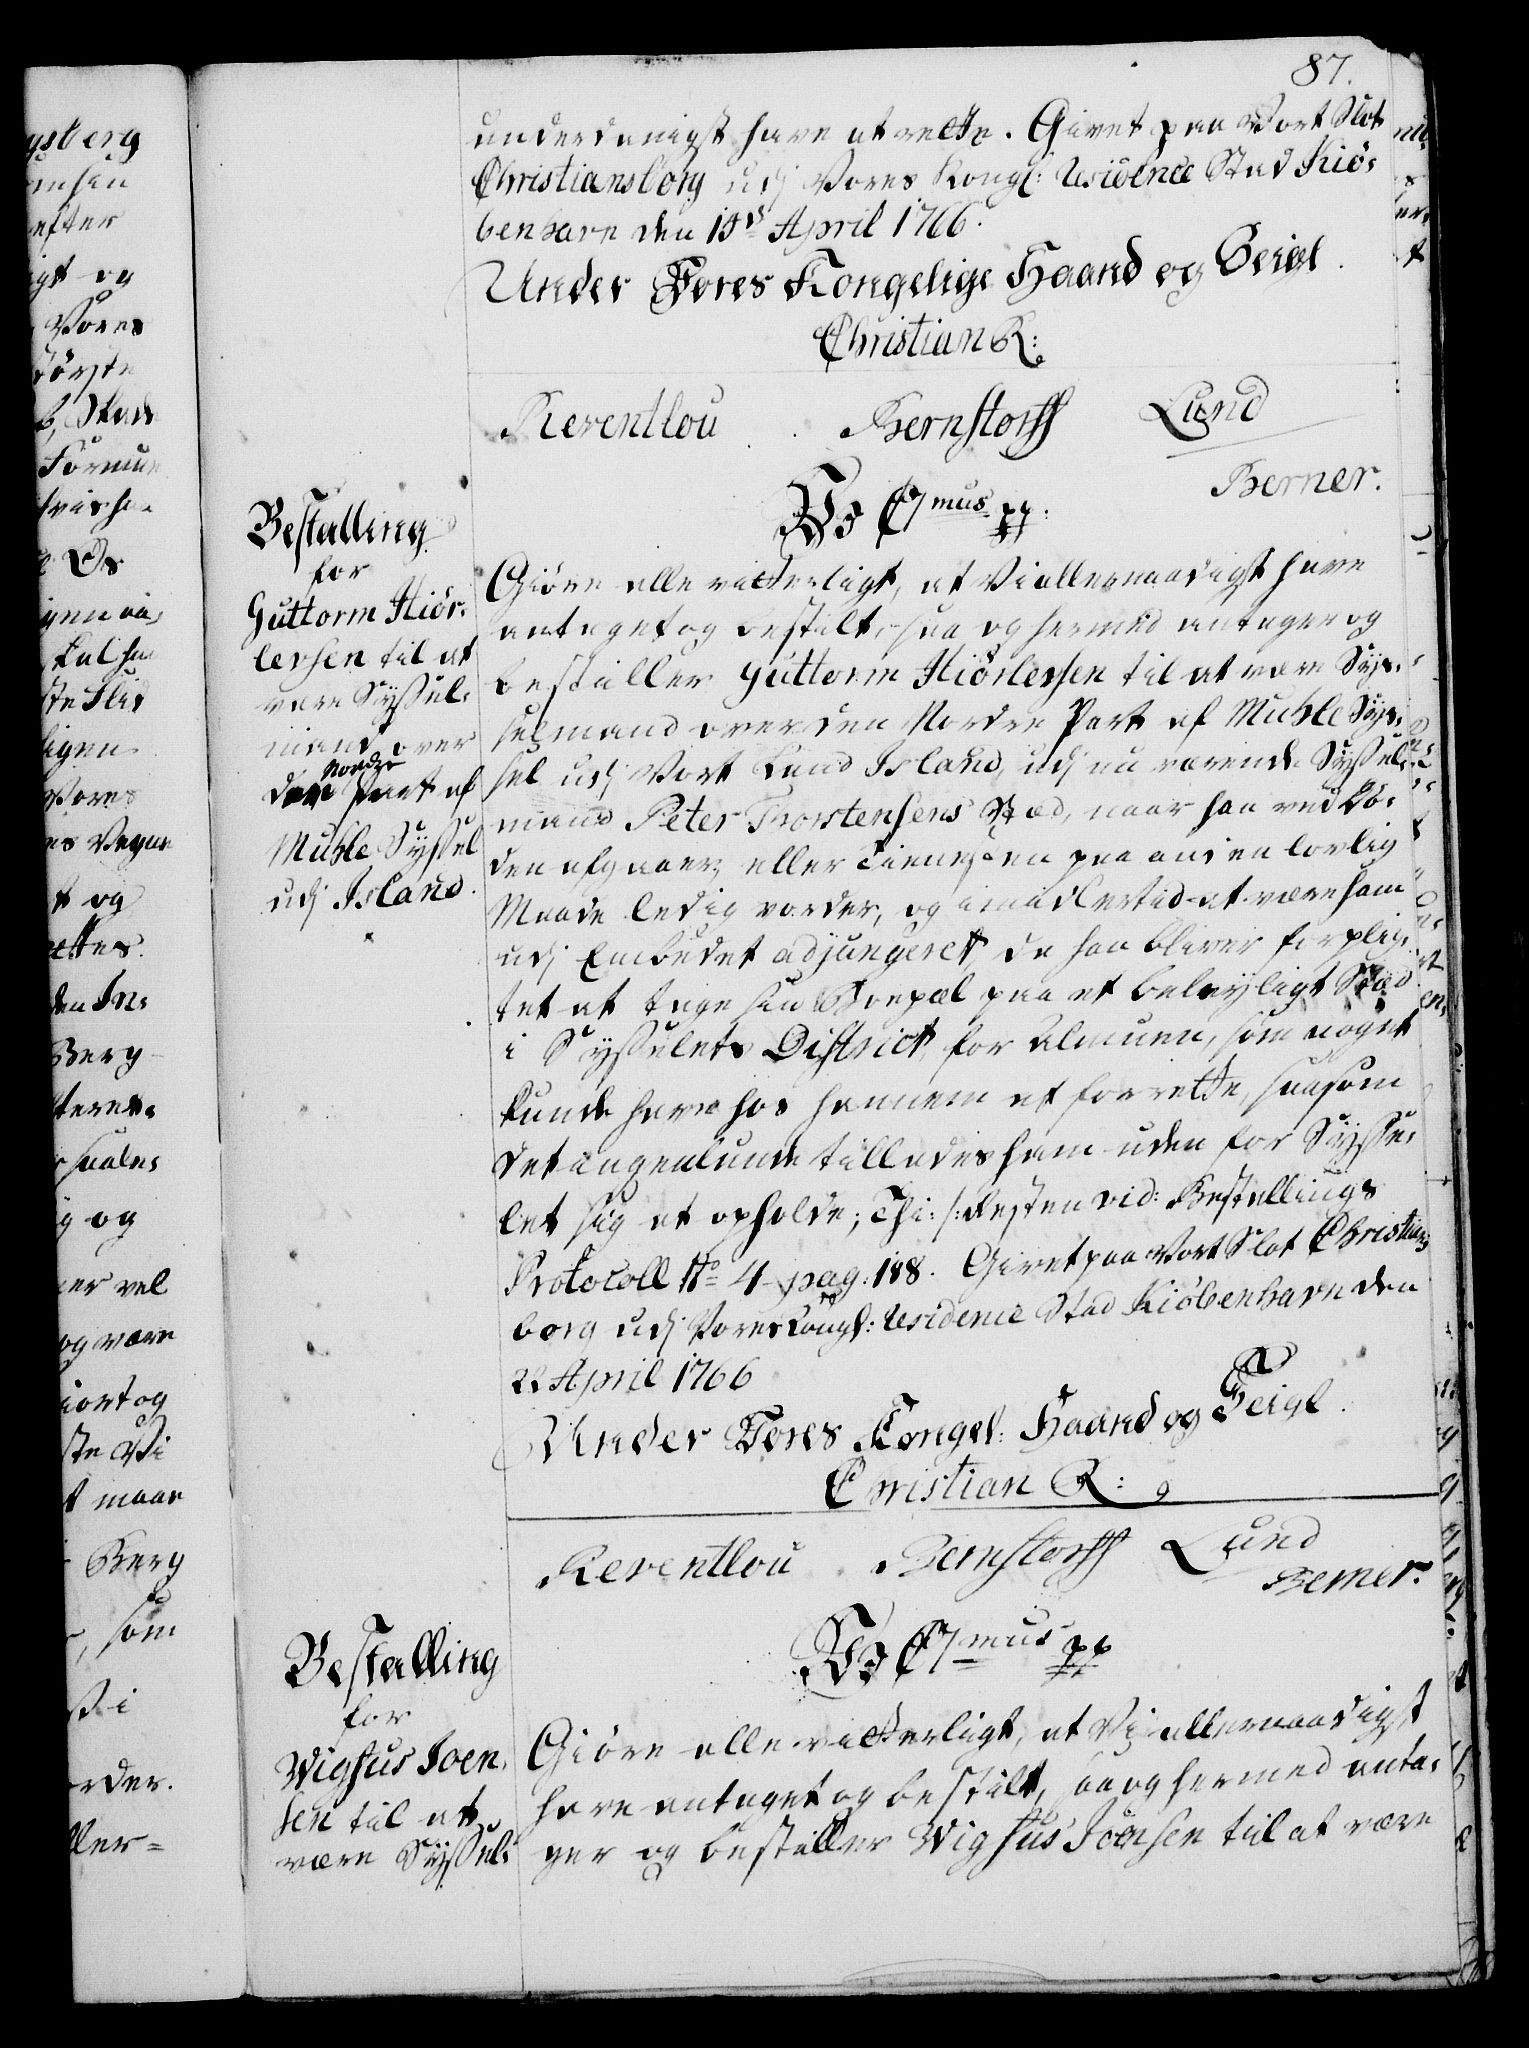 87.
underdanigst have at rette. Givet paa Vort Slot
Christiansborg udj Vores Kongl: Residence Stad Kiö-
benhavn den 18de April 1766.
Under Vores Kongelige Haand og Seigl.
Christian R:
Reventlou Bernstorff Lund
Berner.
Bestalling
for
Guttorm Hiör-
lersen til at
være Sÿssel-
mand over
den Nordre Part af
Muhle Sÿssel
udj Island.
Wo C7mus pp:
Giöre alle vitterligt, at Vi allernaadigst have
antaget og bestilt, saa og hermed antager og
bestiller Guttorm Hiörlersen til at være Sÿs-
selmand over den Nordre Part af Muhle Sÿs-
sel udj Vort Land Island, udj nu værende Sÿssel-
mand Peter Thorstensens Stæd, naar han ved Dö-
den afgaaer, eller Tienesten paa anden lovlig
Maade ledig vorder, og imidlertid at være ham
udj Embedet adjungeret, da han bliver forplig-
tet at tage sin Boepæl paa et beleyligt Stæd
i Sÿsselets District for Almuen, som noget
kunde have hos hannem at forrette, saasom
det ingenlunde tillades ham uden for Sÿsse-
let sig at opholde; Thi: /: Resten vid: Bestallings
Protocoll No 4 pag. 188. Givet paa Vort Slot Christians
borg udj Vores Kongl: Residence Stad Kiöbenhavn den
22 April 1766
Under Vores Kongel: Haand og Seigl.
Christian R:
Reventlou Bernstorff Lund
Berner.
Bestalling
for
Wigfus Joen-
sen til at
være Sÿssel-
Wo C7mus pp
Giöre alle vitterligt, at Vi allernaadigst
have antaget og bestilt, saa og hermed anta-
ger og bestiller Wigfus Joensen til at være